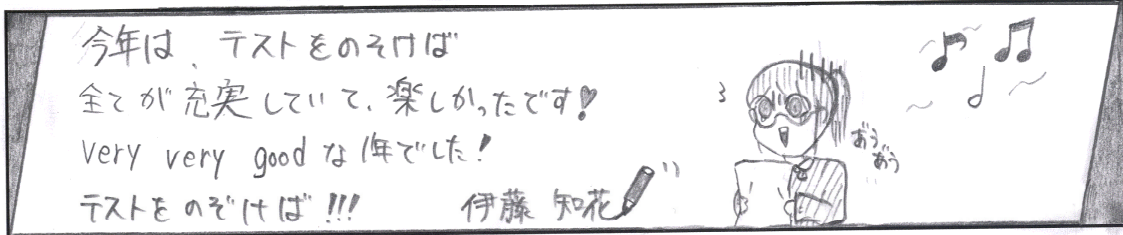 今年は、テストをのぞけば
全てが充実していて、楽しかったです!
very very goodな1年でした!
テストをのぞけば!!!
伊藤 知花
あぅ
あぅ